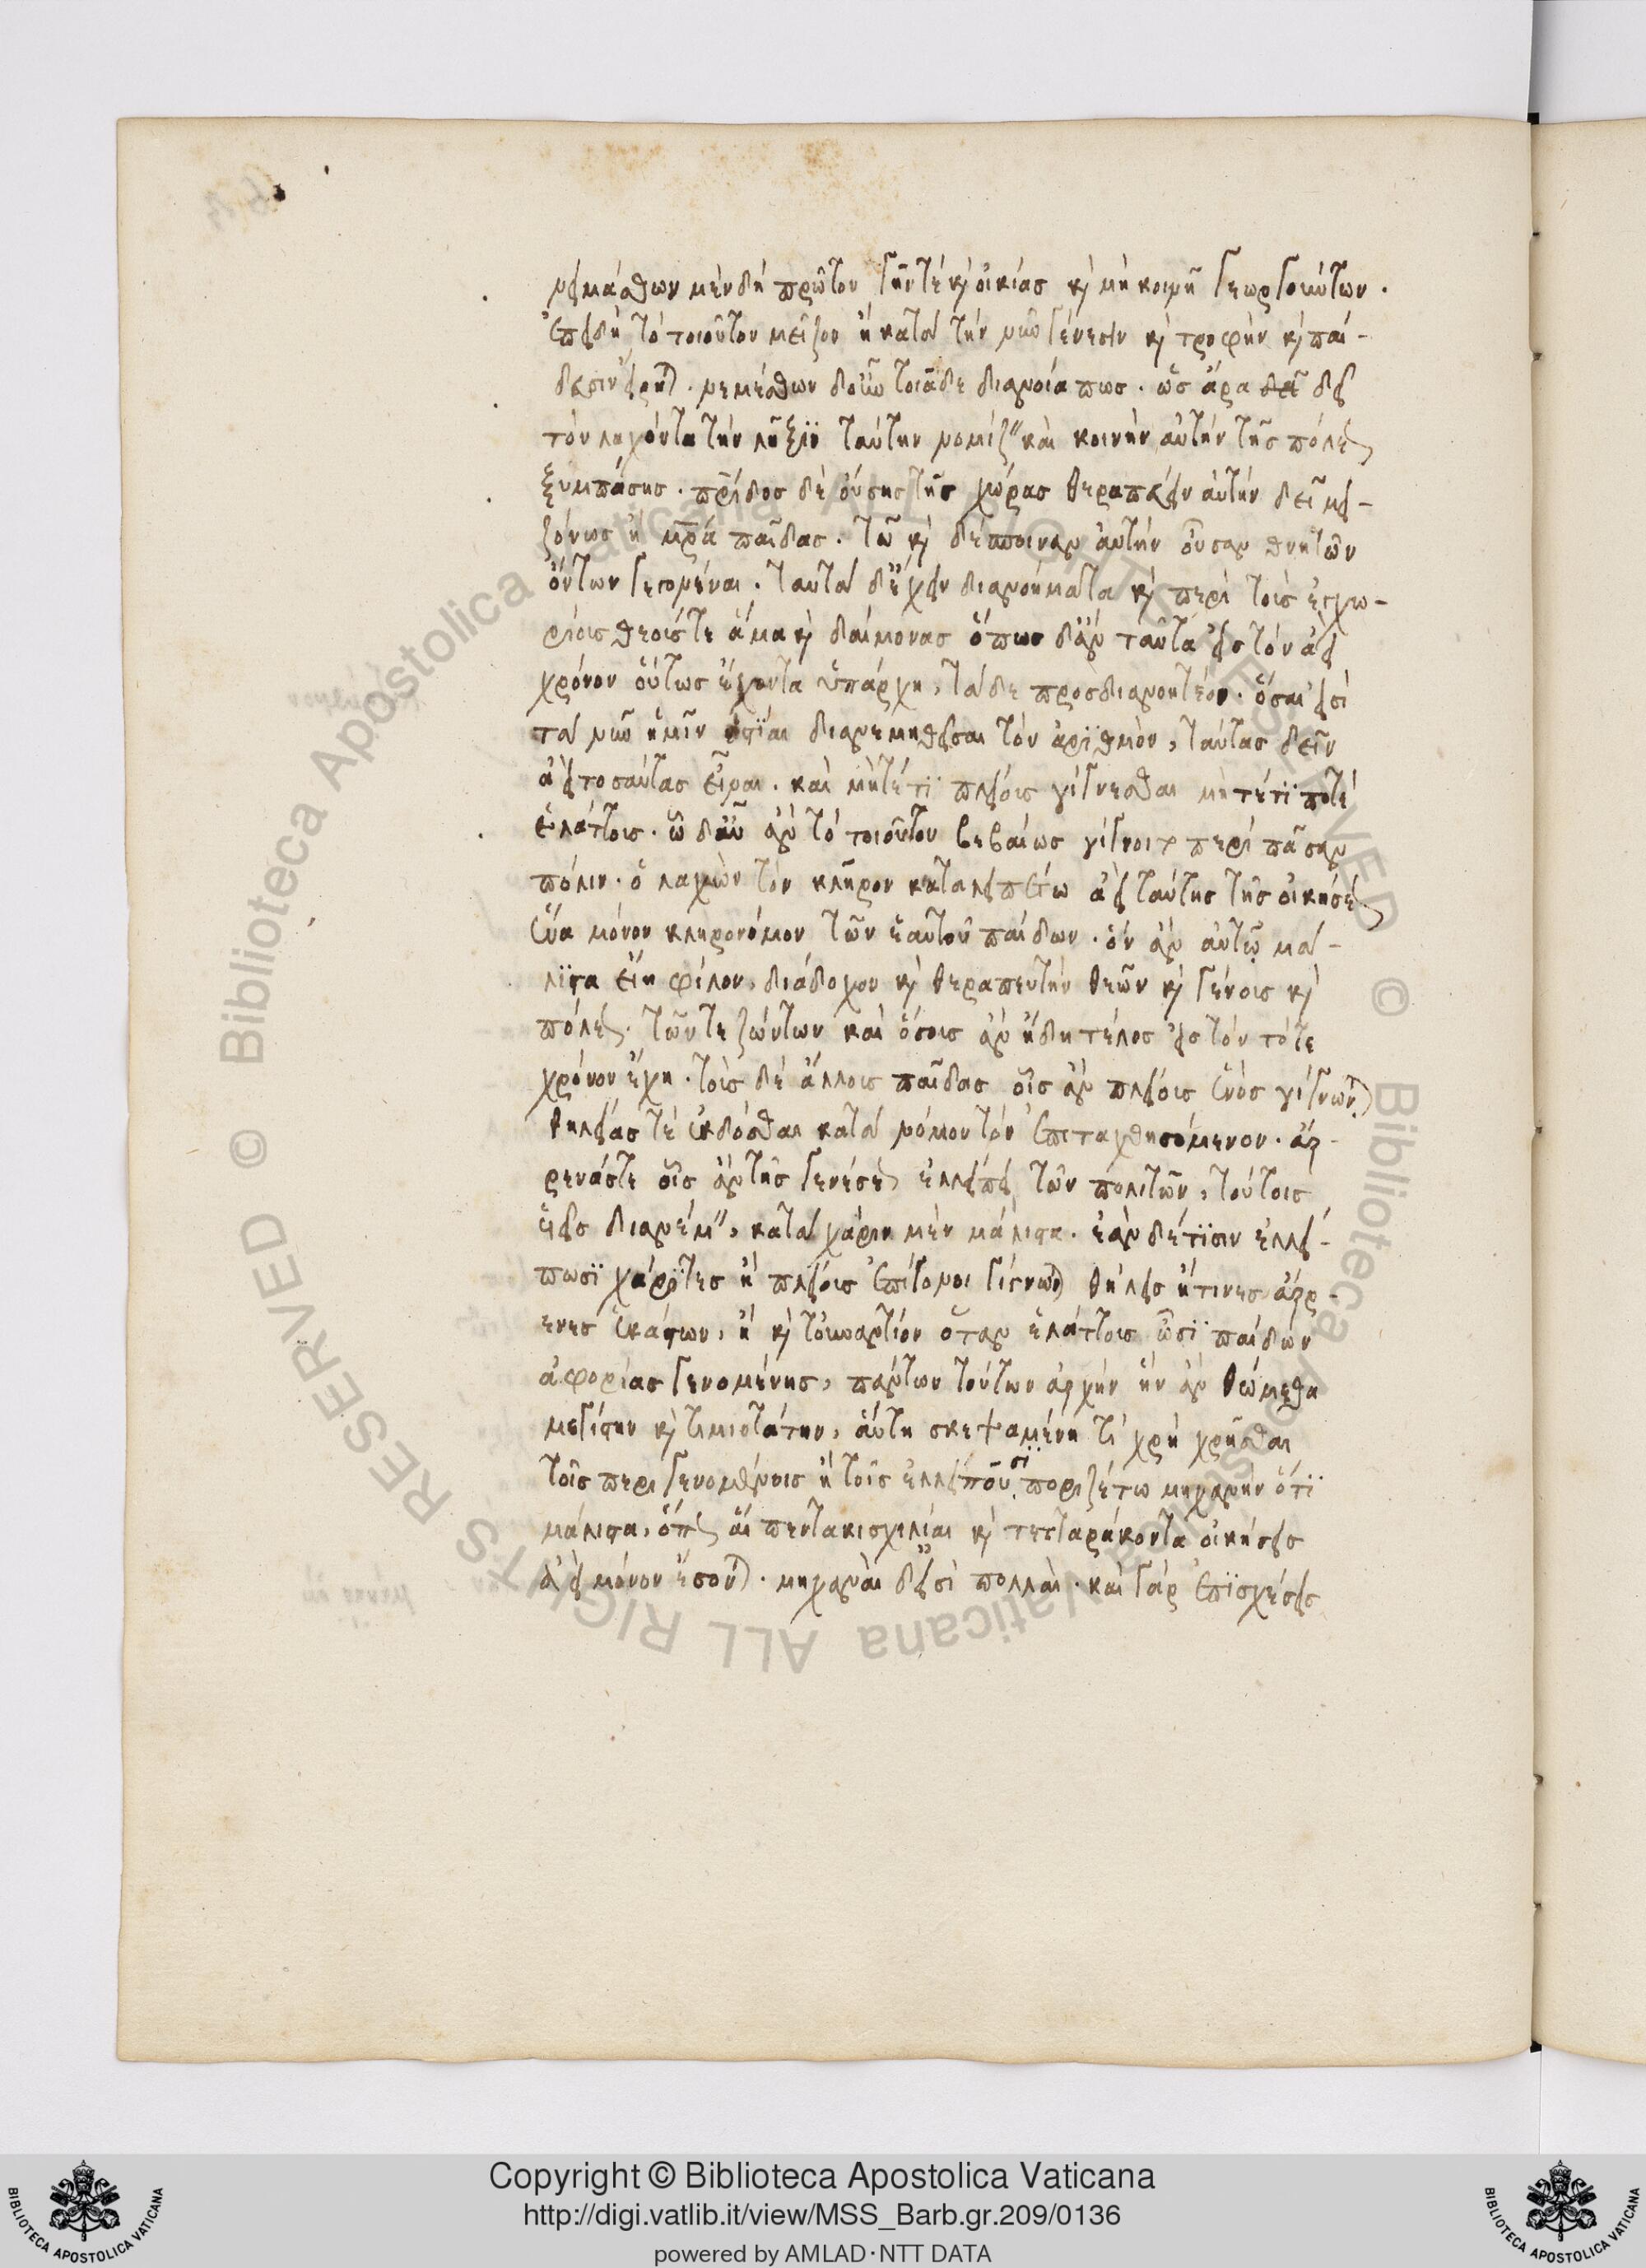 νειμάσθων μὲν δὴ πρῶτον γῆν τὲ κὶ οἰκίας κὶ μὴ κοινῆ γεωργούντων.
ἐπειδὴ τὸ τοιοῦτον μεῖζον ἢ κατὰ τὴν νῦν γένεσιν κὶ τροφὴν κὶ παί-
δευσιν εἴρηται. νεμέσθων δοὖν τοιᾶδε διανοία πως. ὡς ἄρα δεῖ
τὸν λαχόντα τὴν λῆξϊν ταύτην νομίζειν καὶ κοινὴν αὐτὴν τῆς πόλεως
ξυμπάσης. πρίδος δὲ οὔσης τῆς χώρας θεραπεύειν αὐτὴν δεῖ μει-
ζόνως ἢ μρα παῖδας. τῶ κὶ δέσποιναν αὐτὴν οὖσαν θνητῶν
ὄντων γεγονέναι. ταυτὰ δἔχειν διανοήματα κὶ περὶ τοὺς ἐγχω-
ρίους θεούς τε ἅμα κὶ δαίμονας ὅπως δἂν ταῦτα εἰς τὸν ἀεὶ
χρόνον οὕτως ἔχοντα ὑπάρχη, τάδε προσδιανοητέον. ὅσαι εἰσὶ
τὰ νῦν ἡμῖν ἑστΐαι διανεμηθεῖσαι τὸν ἀρϊθμὸν, ταύτας δεῖν
ἀεὶ τοσαύτας εἶναι. καὶ μήτέ τϊ πλείους γίγνεσθαι μὴτέ τϊ ποτὲ
ἐλάττους. ὧδ' οὖν ἂν τὸ τοιοῦτον βεβαίως γίγνοιτο περὶ πᾶσαν
πόλιν. ὁ λαχὼν τὸν κλῆρον καταλειπέτω ἀεὶ ταύτης τῆς οἰκήσεως
ἕνα μόνον κληρονόμον τῶν ἑαυτοῦ παίδων. ὃν ἂν αὐτῷ μά-
λϊστα εἴη φίλον, διάδοχον κὶ θεραπευτὴν θεῶν κὶ γένους κὶ
πόλεως. τῶν τε ζώντων καὶ ὅσους ἂν ἤδη τέλος εἰς τὸν τότε
χρόνον ἔχη. τοὺς δὲ ἄλλους παῖδας οἷς ἂν πλείους ἑνὸς γίγνωνται
θηλείας τὲ ἐκδόσθαι κατὰ νόμον τὸν ἐπιταχθησόμενον. ἄρ-
ρενάς τε οἷς ἂν τῆς γενέσεως ἐλλείπει τῶν πολιτῶν, τούτοις
υἱεῖς διανέμειν, κατὰ χάριν μὲν μάλιστα. ἐὰν δέ τϊσιν ἐλλεί-
πωσϊ χάρϊτες ἢ πλείους ἐπίγονοι γίγνωνται θήλεις ἤ τινες ἄρρ-
ενες ἑκάστων, ἢ κὶ τοὐναντίον ὅταν ἐλάττους ὦσϊ παίδων
ἀφορίας γενομένης, πάντων τούτων ἀρχὴν ἣν ἂν θώμεθα
μεγίστην κὶ τιμιοτάτην, αὕτη σκεψαμένη τί χρὴ χρῆσθαι
τοῖς περιγενομένοις ἢ τοῖς ἐλλείπουσϊ ποριζέτω μηχανὴν ὅτϊ
μάλιστα, ὅπως αἱ πεντακισχιλίαι κὶ τετταράκοντα οἰκήσεις
ἀεὶ μόνον ἔσονται. μηχαναὶ δεἰσὶ πολλαὶ. καὶ γὰρ ἐπϊσχέσεις
Copyright © Biblioteca Apostolica Vaticana
http://digi.vatlib.it/view/MSS_Barb.gr.209/0136
powered by AMLAD·NTT DATA